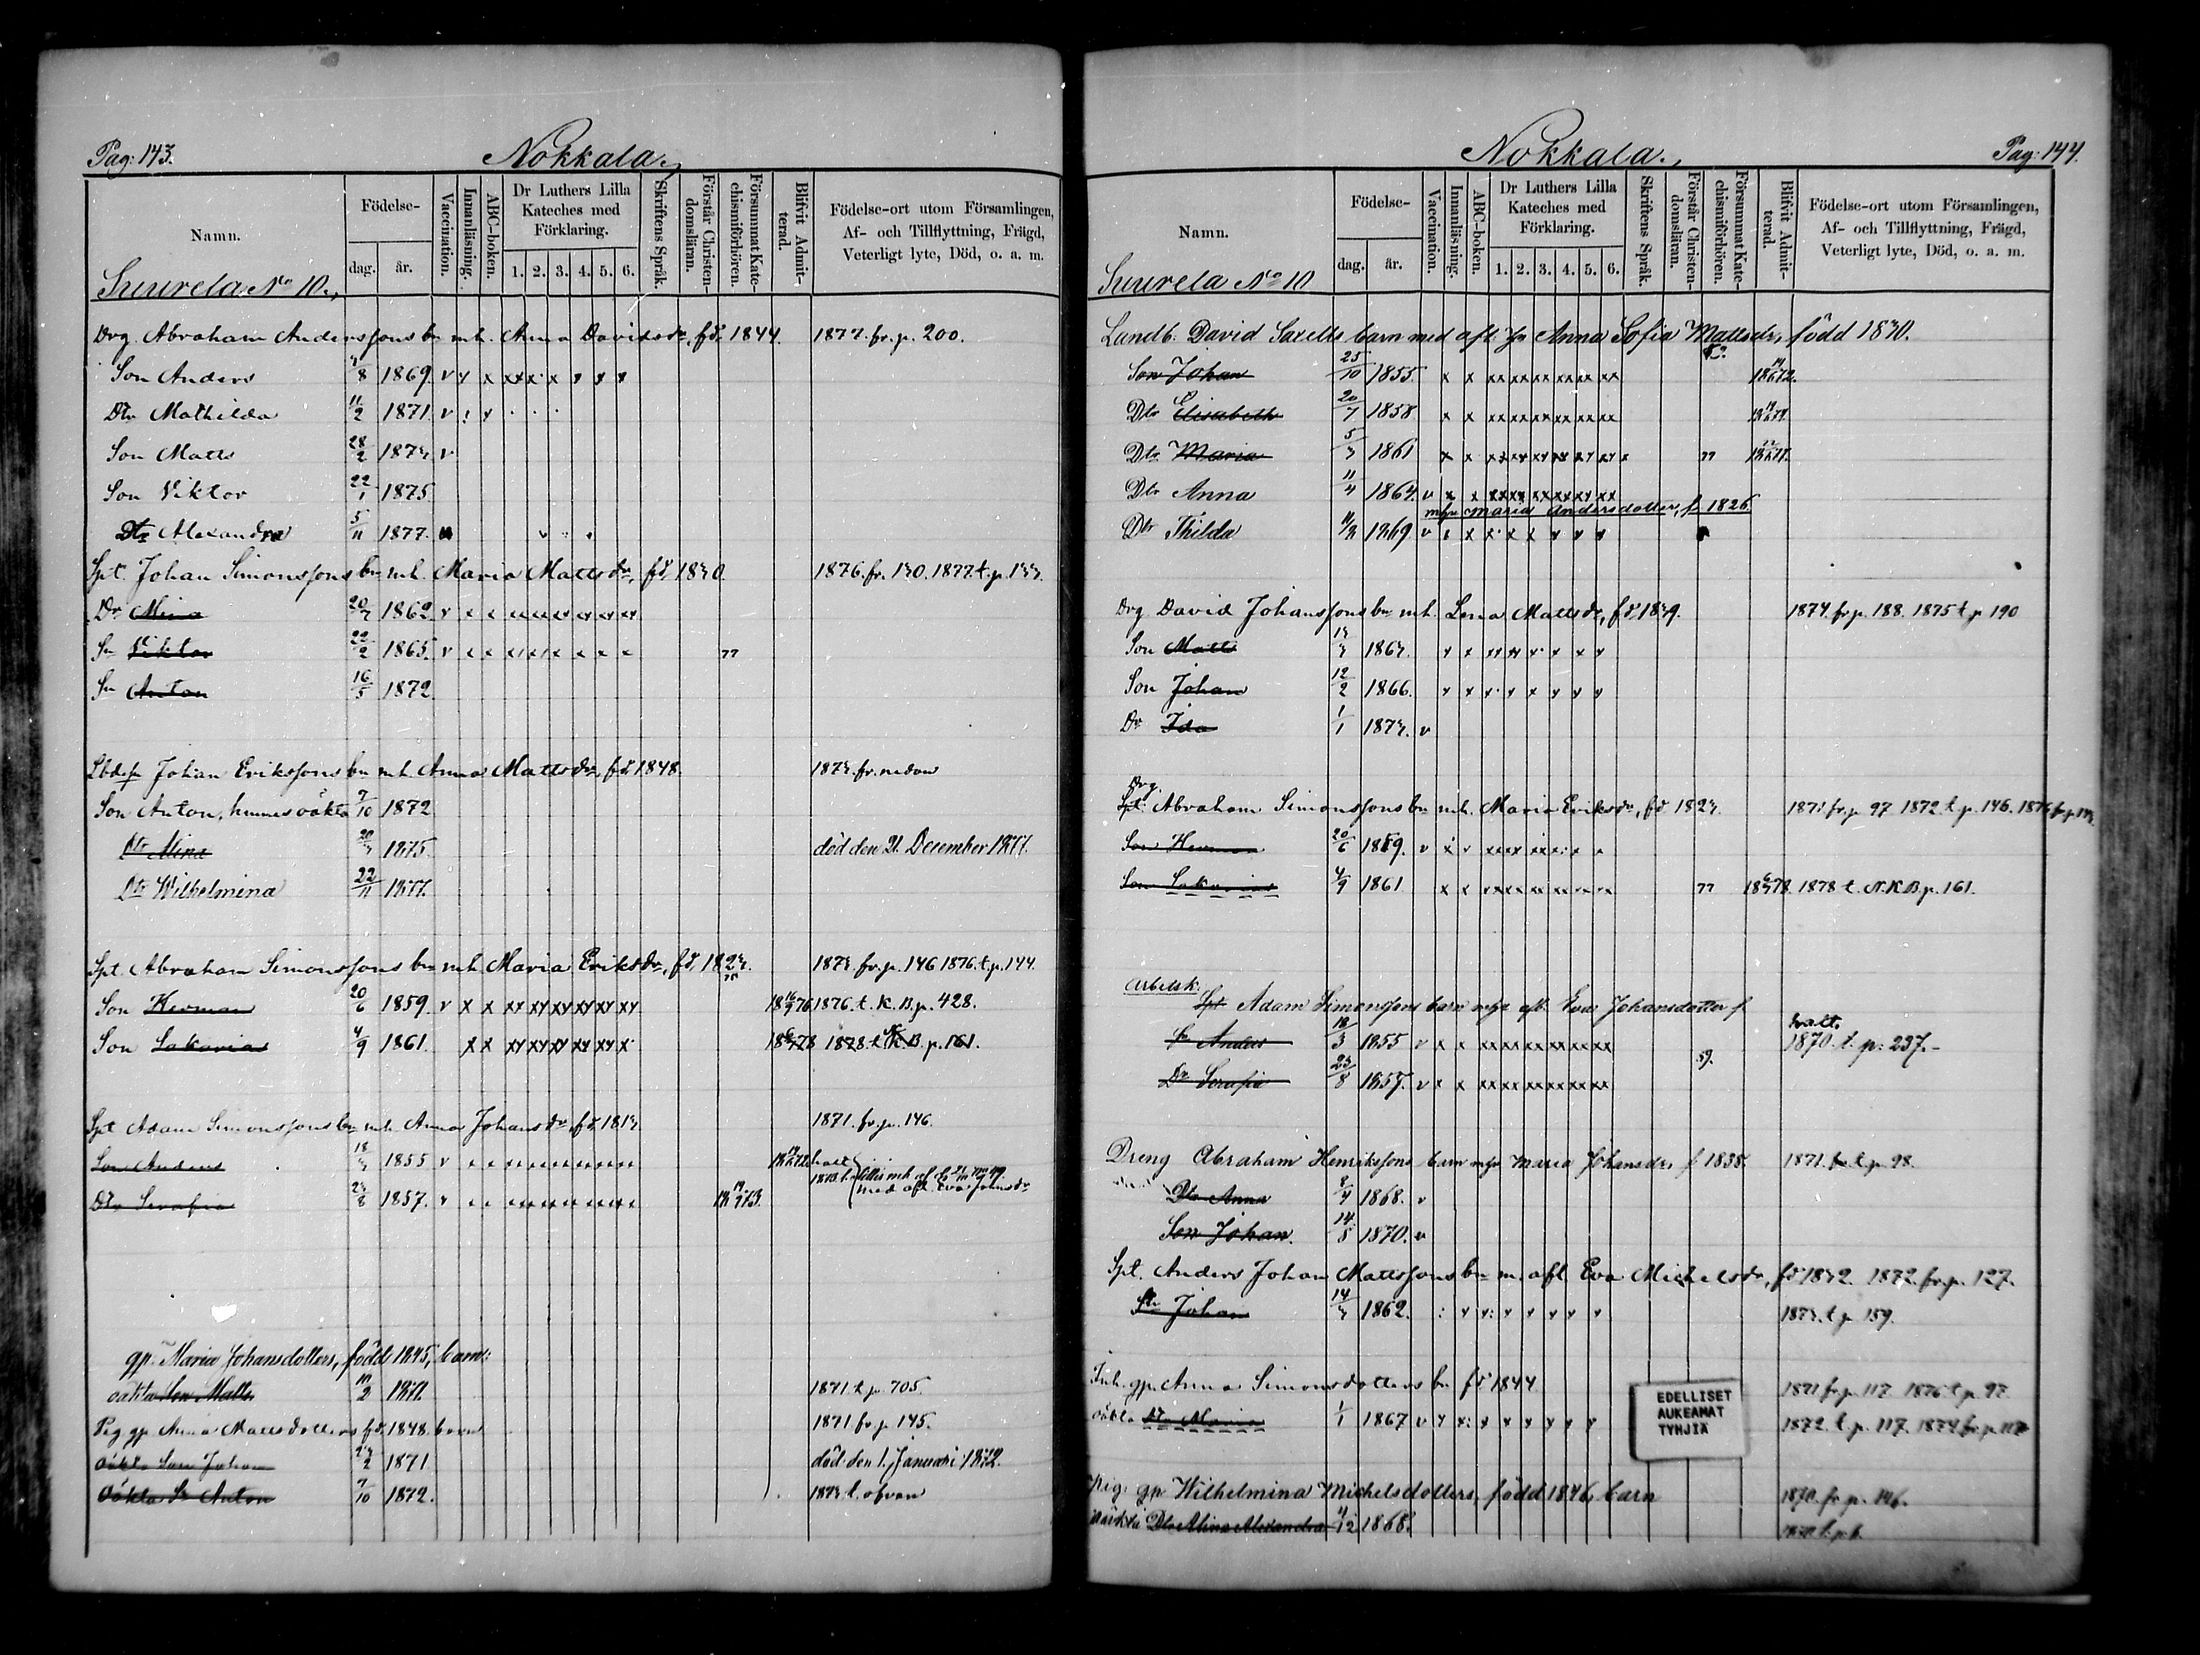 Pag: 143.
Nokkala.
Namn.
Födelse-
dag.
år.
Vaccination.
Innanläsning.
ABC-boken.
Dr Luthers Lilla
Kateches med
Förklaring.
1. 2. 3. 4. 5. 6.
Skriftens Språk.
Förstår Christen-
domsläran.
Försummat Kate-
chismiförhören.
Blifvit Admit-
terad.
Födelse-ort utom Församlingen,
Af- och Tillflyttning, Frägd,
Veterligt lyte, Död, o. a. m.
Suurela No 10.
Drg. Abraham Anderssons bn mh. Anna Davidsdr, fd. 1844. 1877. fr. p. 200.
Son Anders 1869. v
Dtr Mathilda 11/2 1871. v
Son Matts 28/2 1873 v
Son Viktor 22/1 1875
Dtr Alexandra 5/11 1877.
Spt. Johan Simonssons bn mh. Maria Mattsdr, fd. 1830. 1876. fr. 130. 1877. t. p. 133.
Dr Mina 1862 v
Sn Viktor 22/2 1865. v
Sn Anton 16/5 1872
Johan Erikssons bn mh. Anna Mattsdr, fd. 1848. 1873. fr. nedan
Son Anton, hennes oäkta 7/10 1872
Dtr Mina 1875. död den 21. December 1877.
Dtr Wilhelmina 22/11 1877.
Spt. Abraham Simonssons bn mh. Maria Eriksdr, fd. 1823. 1873. fr. p. 146 1876. t. p. 144.
Son Herman 20/6 1859. v 1876. t. K. B. p. 428.
Son Sakarias 4/9 1861. 1878. t. K B. p. 161.
Spt Adam Simonssons bn mh. Anna Johansdr, fd. 1813 1871. fr. p. 146.
Son Anders 18/3 1855 v halt
Dtr Serafia 23/8 1857. v med afl. Eva Johansdr
gp. Maria Johansdotters, född 1845, barn:
oäkta Son Matts 1871 t. p. 705.
Pig gp. Anna Mattsdotters fd. 1848. barn 1871. fr. p. 145.
oäkta Son Johan 1871 död den 1. Januari 1872.
Oäkta Sn Anton 7/10 1872. 1873. t. ofvan
Nokkala.
Pag: 144.
Namn.
Födelse-
dag.
år.
Vaccination.
Innanläsning.
ABC-boken.
Dr Luthers Lilla
Kateches med
Förklaring.
1. 2. 3. 4. 5. 6.
Skriftens Språk.
Förstår Christen-
domsläran.
Försummat Kate-
chismiförhören.
Blifvit Admit-
terad.
Födelse-ort utom Församlingen,
Af- och Tillflyttning, Frägd,
Veterligt lyte, Död, o. a. m.
Suurela No 10
Landb. David barn med afl. Anna Sofia Mattsdr, född 1830.
Son Johan 25/10 1855.
Dtr Elisabeth 20/7 1858
Dtr Maria 5/3 1861
Dtr Anna 11/4 1864. v
Maria Andersdotter, f 1826.
Dtr Thilda 1869 v
Drg David Johanssons bn mh. Lena Mattsdr, fd. 1839. 1874. fr. p. 188. 1875 t p 190
Son Matts 1863.
Son Johan 12/2 1866.
Dr Ida 1/1 1873. v
Drg.
Spt. Abraham Simonssons bn mh. Maria Eriksdr, fd. 1823. 1871. fr. p. 97. 1872. t. p. 146.
Son Herman 20/6 1859. v
Son Sakarias 4/9 1861 1878 t. N. K B. p. 161.
Arbetsk:
Spt Adam Simonssons barn afl. Eva Johansdotter f.
Sn Anders 18/3 1855 v halt.
1870. t. p: 237.
Dr Serafia 23/8 1857. v
Dreng Abraham Henrikssons barn Maria Johansdr, f 1838. 1871. t. p. 98.
Dtr Anna 1868. v
Son Johan. 1870. v
Spt. Anders Johan Mattssons bn m. afl. Eva Michelsdr, fd 1832. 1872. fr. p. 127.
Sn Johan 14/3 1862. 1873. t. p. 159.
Inh. gp. Anna Simonsdotters bn fd 1844 1871. fr. p. 117. 1876 t. p. 97.
oäkta Dtr Maria 1/1 1867 v 1872. t. p. 117. 1874. fr. p. 117
EDELLISET
AUKEAMAT
TYHJIÄ
Pig: gp Wilhelmina Michelsdotters, född 1846, barn 1870. fr. p. 146.
oäkta Dtr Alina Alexandra 1868.